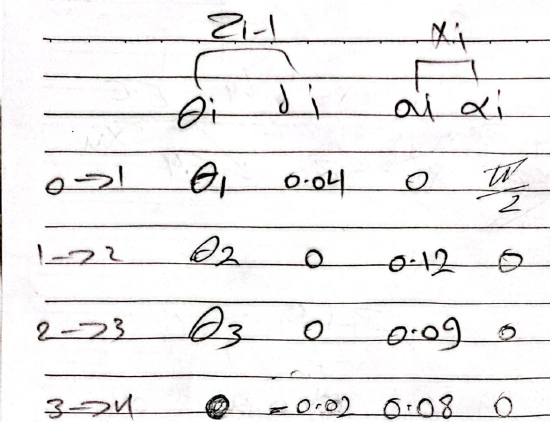 Zi-1 Xi
θi di ai αi
0→1 θ1 0.04 0 π/2
1→2 θ2 0 0.12 0
2→3 θ3 0 0.09 0
3→4 -0.02 0.08 0